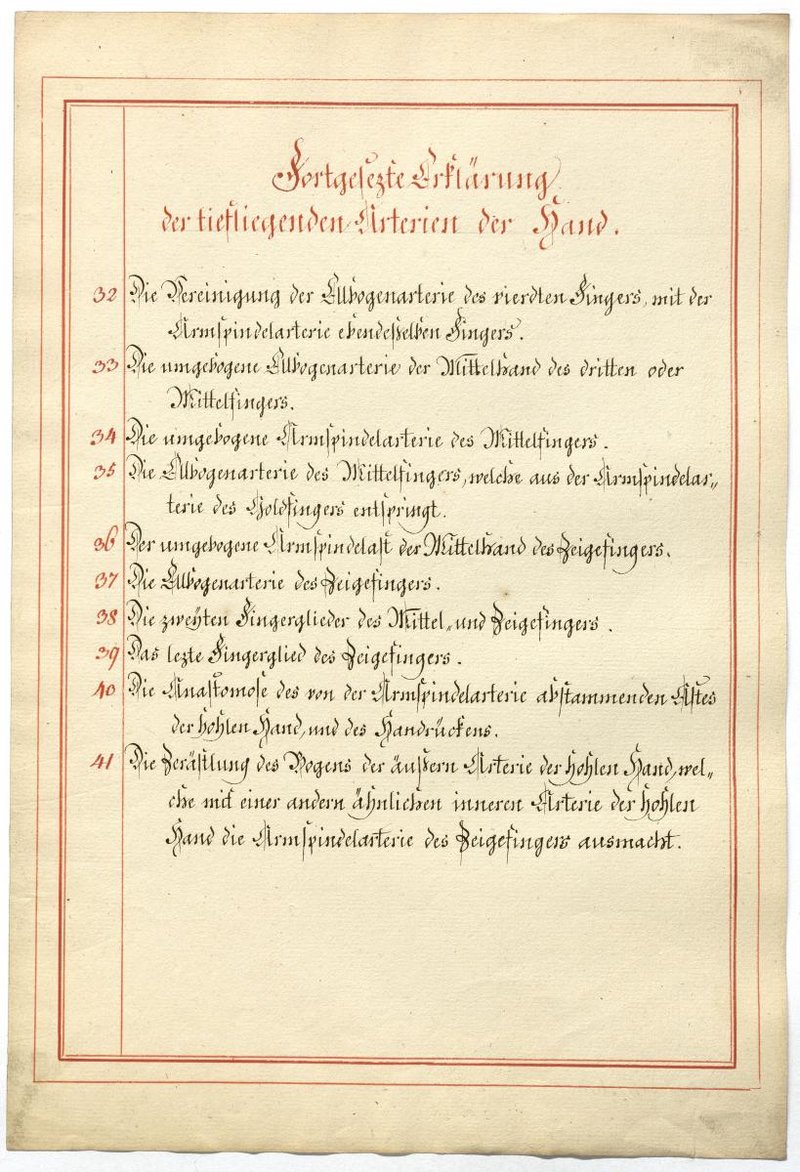 Fortgesezte Erklärung
der tiefliegenden Arterien der Hand.
32 Die Vereinigung der Ellbogenarterie des vierdten Fingers, mit der
Armspindelarterie ebendesselben Fingers.
33 Die umgebogene Ellbogenarterie der Mittelhand des dritten oder
Mittelfingers.
34 Die umgebogene Armspindelarterie des Mittelfingers.
35 Die Ellbogenarterie des Mittelfingers, welche aus der Armspindelar„
terie des Goldfingers entspringt.
36 Der umgebogene Armspindelast der Mittelhand des Zeigefingers.
37 Die Ellbogenarterie des Zeigefingers.
38 Die zweyten Fingerglieder des Mittel„ und Zeigefingers.
39 Das lezte Fingerglied des Zeigefingers.
40 Die Anastomose des von der Armspindelarterie abstammenden Astes
der hohlen Hand, und des Handrückens.
41 Die Zerästlung des Bogens der äußern Arterie der hohlen Hand, wel„
che mit einer andern ähnlichen inneren Arterie der hohlen
Hand die Armspindelarterie des Zeigefingers ausmacht.